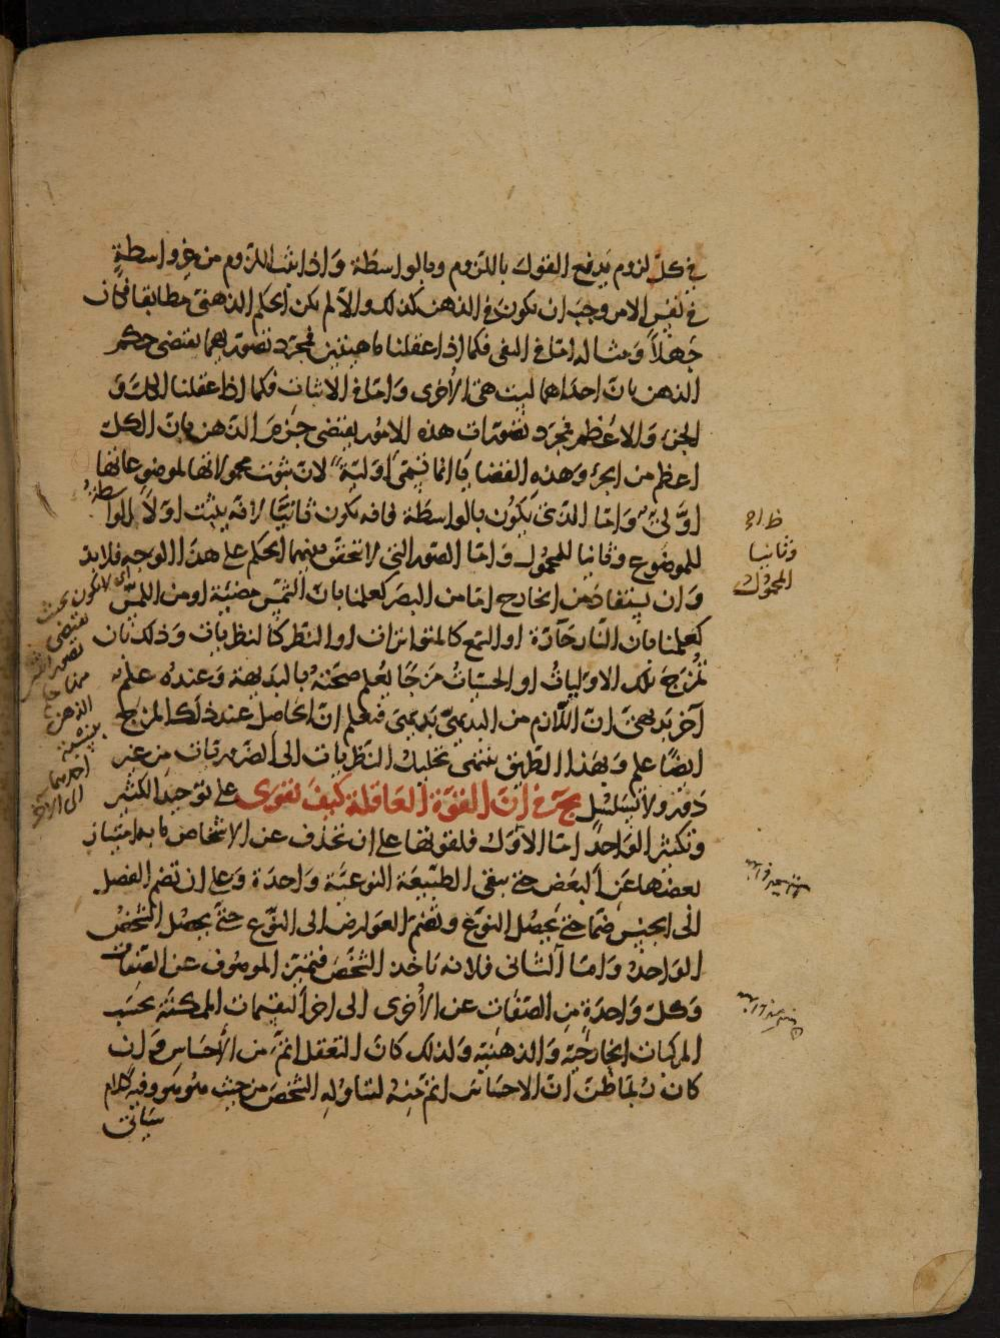 في كل لزوم يدفع القول باللزوم وبالواسطة واذا ثبت اللزوم من غير واسطة
في نفس الامر وجب ان يكون في الذهن كذلك والا لم يكن الحكم الذهني مطابقا فكان
جهلا ومثاله اما في النفي فكما اذا عقلنا ماهيتين فمجرد تصورهما يقتضي حكم
الذهن بان احداهما ليست هي الاخرى واما في الاثبات فكما اذا عقلنا الكل و
الجزء والاعظم فمجرد تصورات هذه الامور يقتضي جزم الذهن بان الكل
اعظم من الجزء وهذه القضايا انما تسمى اولية لان ثبوت محمولاتها لموضوعاتها
اولي واما الذي يكون بالواسطة فانه يكون ثانيا لانه يثبت اولا للواسطة
للموضوع وثانيا للمحمول واما الصور التي لا تحقق معهما الحكم على هذا الوجه فلا بد
وان يستفاد من الخارج اما من البصر كعلمنا بان الشمس مضيئة او من اللمس
كعلمنا بان النار حارة او السمع كالمتواترات او النظر كالنظريات وذلك بان
نمزج تلك الاوليات او الحسيات مزجا يعلم صحته بالبديهة وعنده علم
آخر بديهي ان اللازم من البديهي بديهي فيعلم ان الحاصل عند ذلك المزاج
ايضا علم وبهذا الطريق ينتهي تحليل النظريات الى الضروريات من غير
دور ولا تسلسل بحث في ان القوة العاقلة كيف تقوى على توحيد الكثير
وتكثير الواحد اما الاول فلقوتها على ان تحذف عن الاشخاص ما به امتياز
بعضها عن البعض حتى يبقى الطبيعة النوعية واحدة وعلى ان تضم الفصل
الى الجنس ضما حتى يحصل النوع وتضم العوارض الى النوع حتى يحصل الشخص
الواحد واما الثاني فلانه تاخذ الشخص فتميز الموصوف عن الصفات
وكل واحدة من الصفات عن الاخرى الى اخر التقسيمات الممكنة بحسب
المركبات الخارجية والذهنية ولذلك كان التعقل اتم من الاحساس وان
كان ربما ظن ان الاحساس اتم منه لتناوله الشخص من حيث هو هو وفيه كلام
سياتي
وثانيا
المحمول
اي لا تكون بحيث
يقتضي
تصور
الذهن
بنسبة
احدهما
الى الاخر